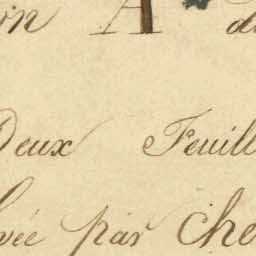 on A d
Deux Feuill
vée par che